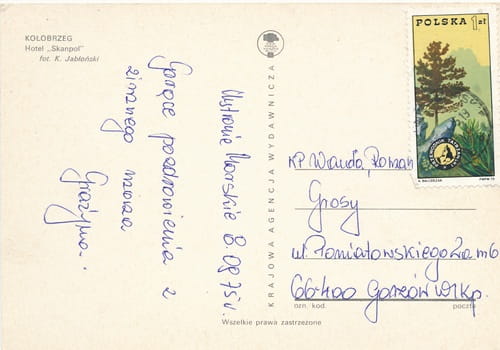 KOŁOBRZEG
Hotel „Skanpol"
fot. K. Jabłoński
Ustronie Morskie 8.08.75r.
Gorące pozdrowienia z
zimnego morza
Grażyna.
KRAJOWA AGENCJA WYDAWNICZA
POLSKA 1zł
KP Wanda, Roman
Grosy
ul. Poniatowskiego 2a m 6
66-400 Gorzów Wlkp.
ozn. kod.
poczta
Wszelkie prawa zastrzeżone